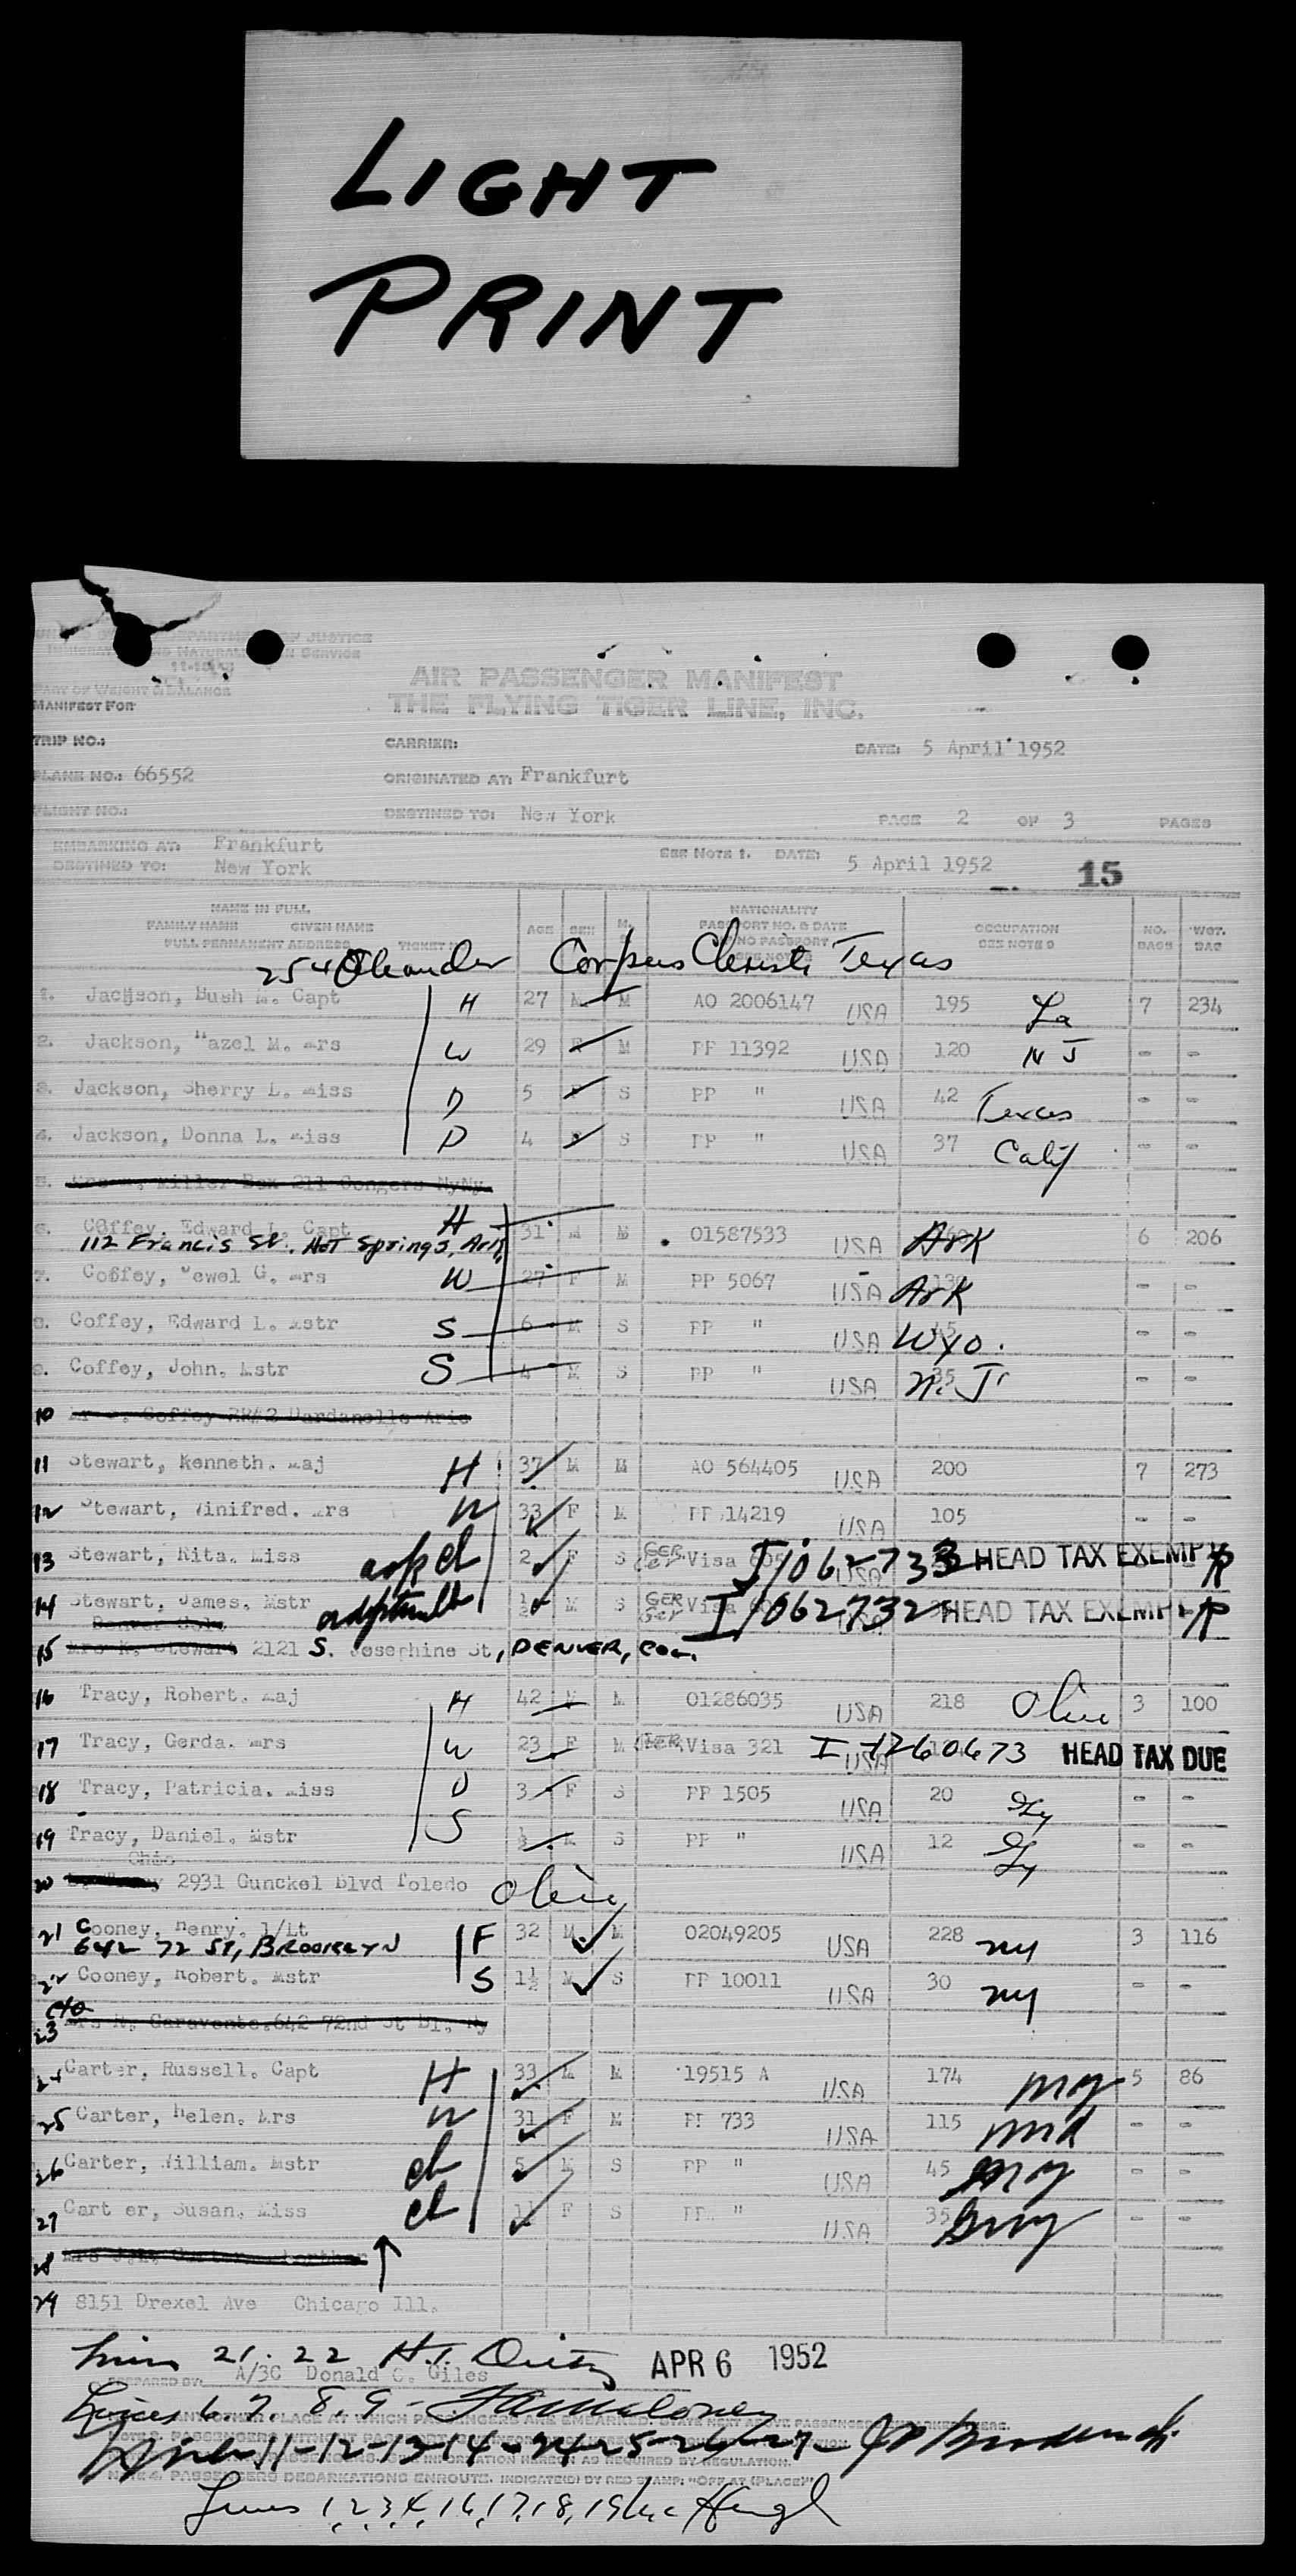 LIGHT
PRINT
DEPARTMENT OF JUSTICE
IMMIGRATION AND NATURALIZATION SERVICE
PART OF WEIGHT & BALANCE
MANIFEST FOR
AIR PASSENGER MANIFEST
THE FLYING TIGER LINE, INC.
TRIP NO.: CARRIER: DATE: 5 April 1952
PLANE NO.: 66552 ORIGINATED AT: Frankfurt
FLIGHT NO.: DESTINED TO: New York PAGE 2 OF 3 PAGES
EMBARKING AT: Frankfurt SEE NOTE 1. DATE: 5 April 1952
DESTINED TO: New York 15
NAME IN FULL
FAMILY NAME GIVEN NAME
FULL PERMANENT ADDRESS TICKET AGE SEX M. NATIONALITY PASSPORT NO. & DATE NO PASSPORT OCCUPATION SEE NOTE NO. BAGS WGT. BAG
254 Oleander Corpus Christi Texas
1. Jackson, Bush M. Capt H 27 M M AO 2006147 USA 195 La 7 234
2. Jackson, Hazel M. Mrs W 29 F M PP 11392 USA 120 N J - -
3. Jackson, Sherry L. Miss D 5 F S PP " USA 42 Texas - -
4. Jackson, Donna L. Miss D 4 F S PP " USA 37 Calif - -
5. Miller Box 211 Congers NyNy
6. Coffey, Edward L. Capt H 31 M M 01587533 USA Ark 6 206
112 Francis St. Hot Springs, Ark
7. Coffey, Jewel G. Mrs W 27 F M PP 5067 USA Ark - -
8. Coffey, Edward L. Mstr S 6 M S PP " USA Wyo. - -
9. Coffey, John. Mstr S 4 M S PP " USA 35 N. J. - -
10 Coffey RR#2 Dardanelle Aris
11 Stewart, Kenneth. Maj H 37 M M AO 564405 USA 200 7 273
12 Stewart, Winifred. Mrs W 33 F M PP 14219 USA 105 - -
13 Stewart, Rita. Miss ch 2 F S GER Ger Visa I 1062733 HEAD TAX EXEMPT
14 Stewart, James. Mstr ½ M S GER Ger Visa I 1062732 HEAD TAX EXEMPT
Denver Colo
15 Mrs K. Stewart 2121 S. Josephine St, DENVER, COL.
16 Tracy, Robert. Maj H 42 M M 01286035 USA 218 Ohio 3 100
17 Tracy, Gerda. Mrs W 23 F M GER Visa 321 USA I-1260673 HEAD TAX DUE
18 Tracy, Patricia. Miss D 3 F S PP 1505 USA 20 - -
19 Tracy, Daniel. Mstr S ½ M S PP " USA 12 - -
Ohio
20 Tracy 2931 Gunckel Blvd Toledo Ohio
21 Cooney, Henry. 1/Lt F 32 M M 02049205 USA 228 ny 3 116
642 72 ST, BROOKLYN
22 Cooney, Robert. Mstr S 1½ M S PP 10011 USA 30 ny - -
c/o
23 Mrs R. Garavente.642 72nd St Br. Ny
24 Carter, Russell. Capt H 33 M M 19515 A USA 174 5 86
25 Carter, Helen. Mrs W 31 F M PP 733 USA 115 - -
26 Carter, William. Mstr ch 5 M S PP " USA 45 - -
27 Carter, Susan. Miss ch 1½ F S PP. " USA 35 - -
28
29 8151 Drexel Ave Chicago Ill.
Lines 21. 22 APR 6 1952
PREPARED BY: A/3C Donald C. Giles
Lines 6. 7. 8. 9 -
PLACE AT WHICH PASSENGERS ARE EMBARKED.
Lines 11-12-13-14-24-25-26-27-
HEREON AS REQUIRED BY REGULATION.
PASSENGERS DEBARKATIONS ENROUTE. INDICATE(D) BY RED STAMP: "OFF AT (PLACE)"
Lines 1 2 3 4, 16, 17, 18, 19